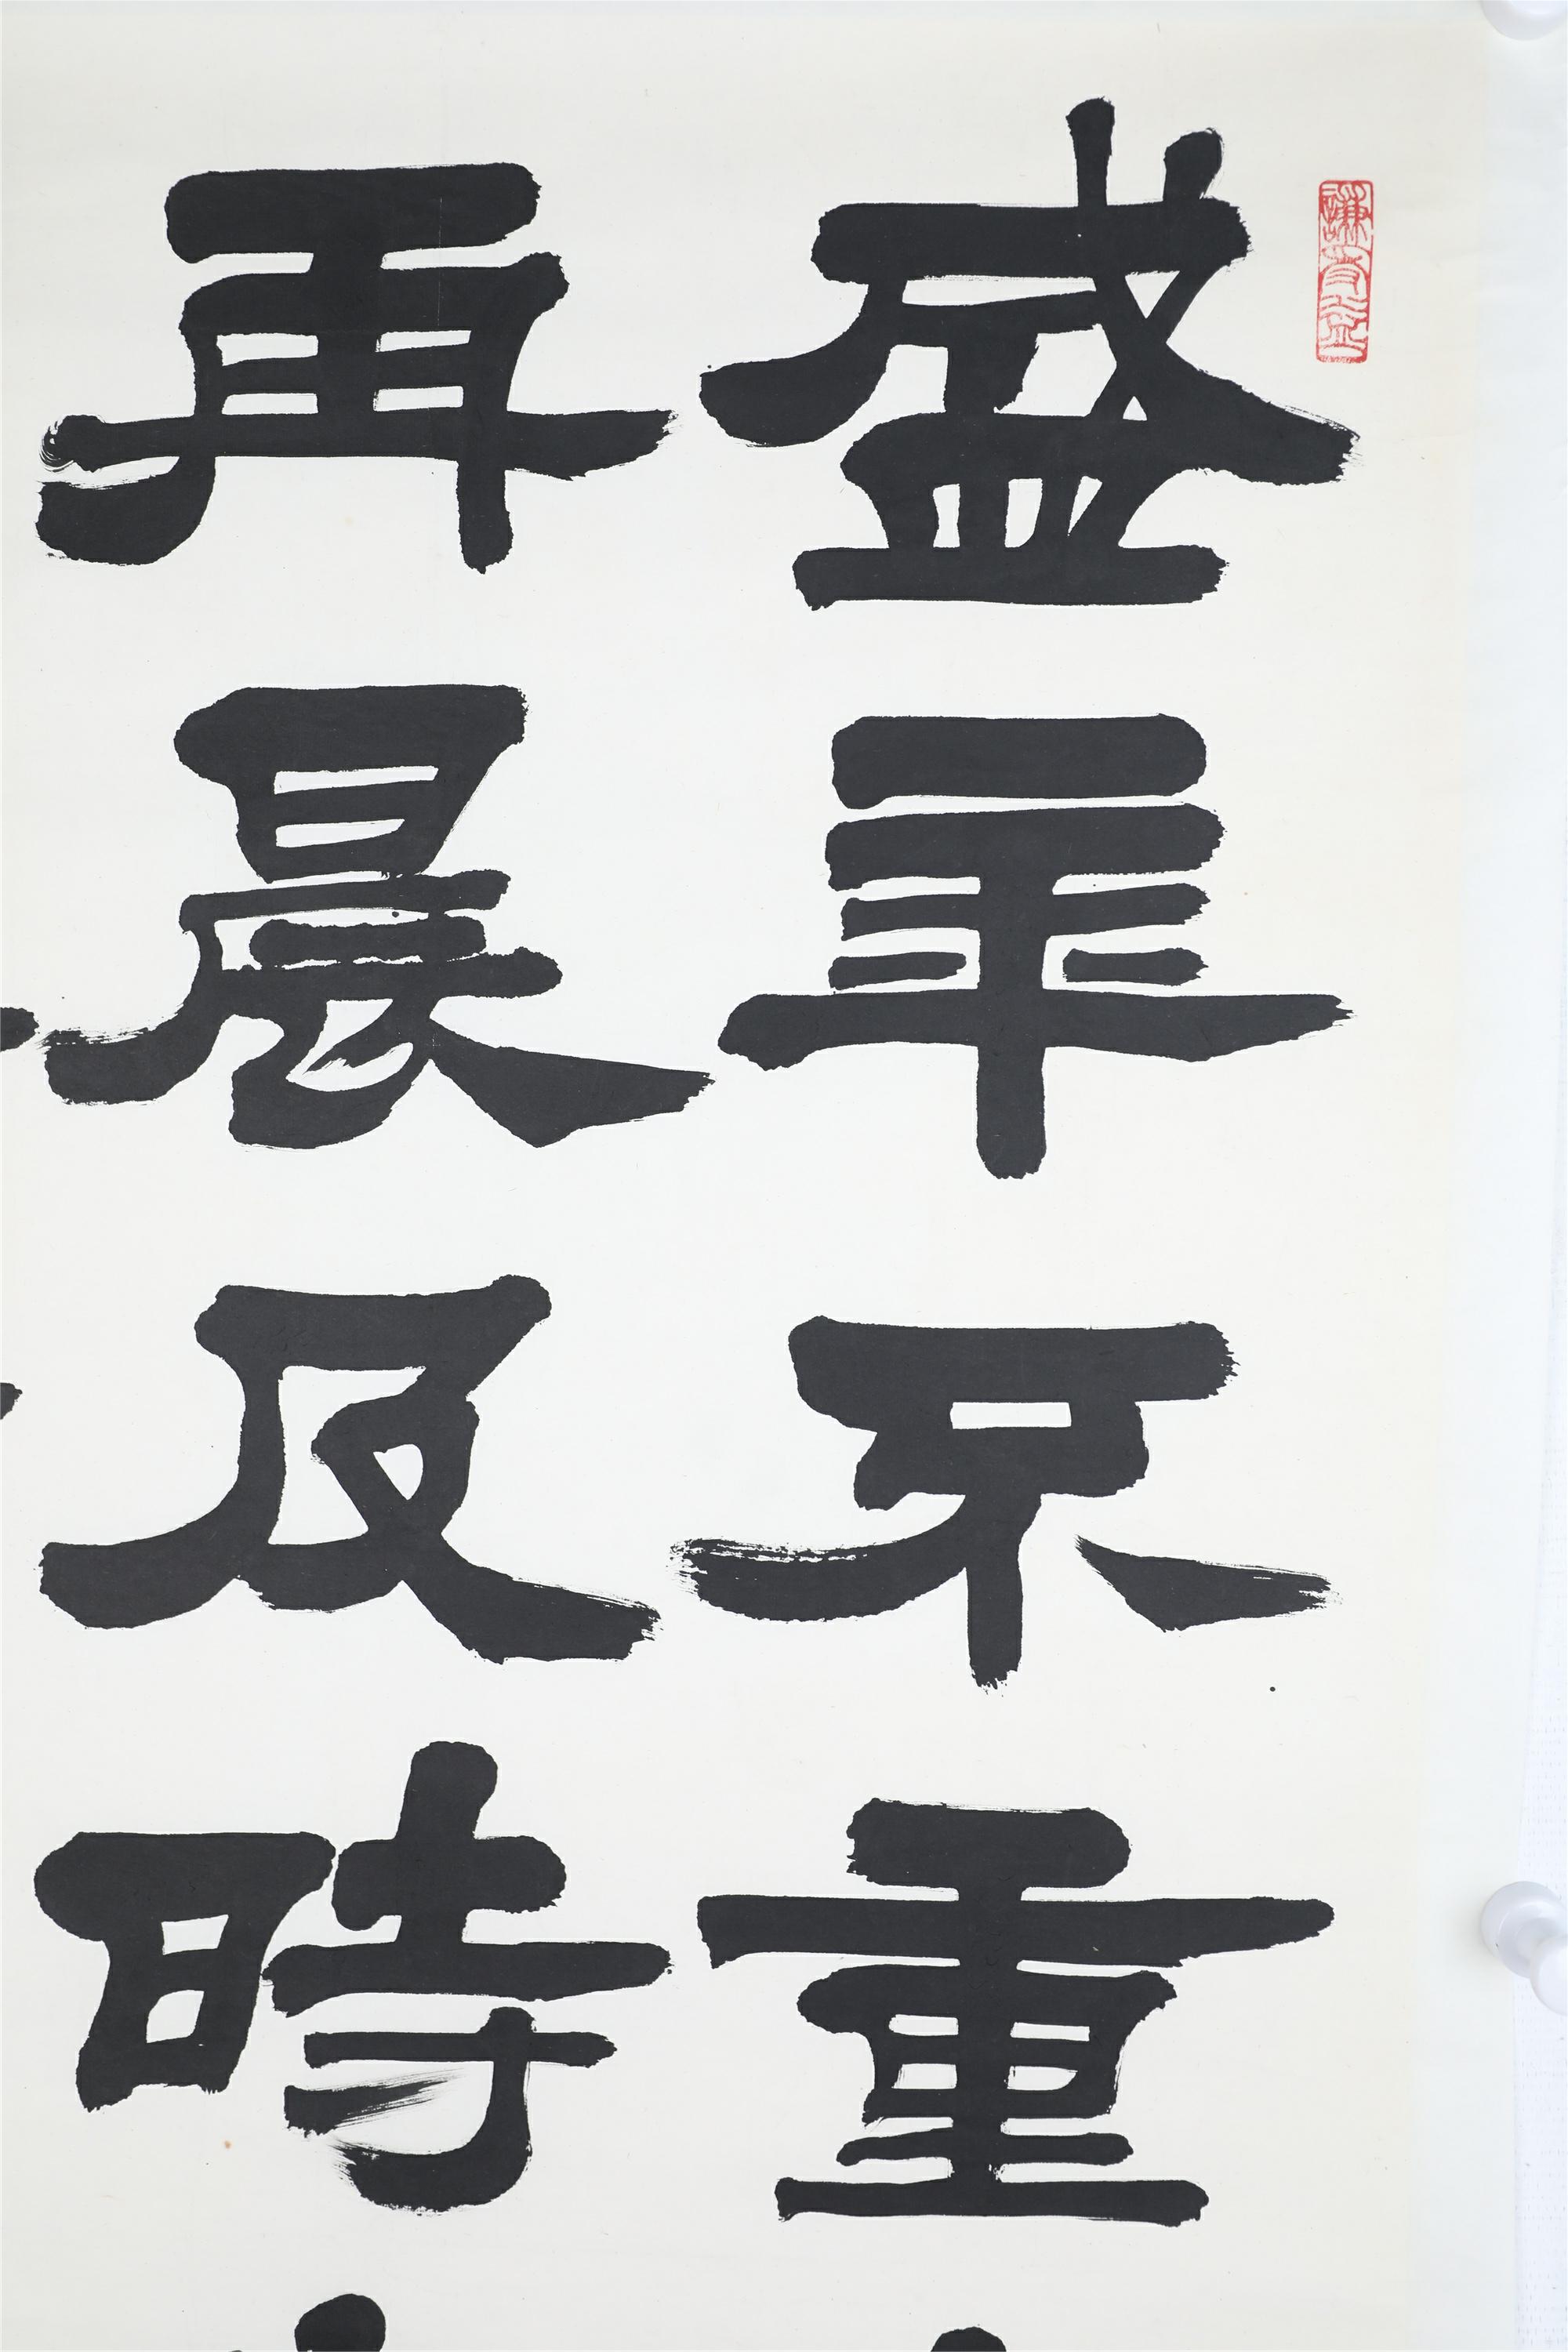 盛年不重
再晨及時